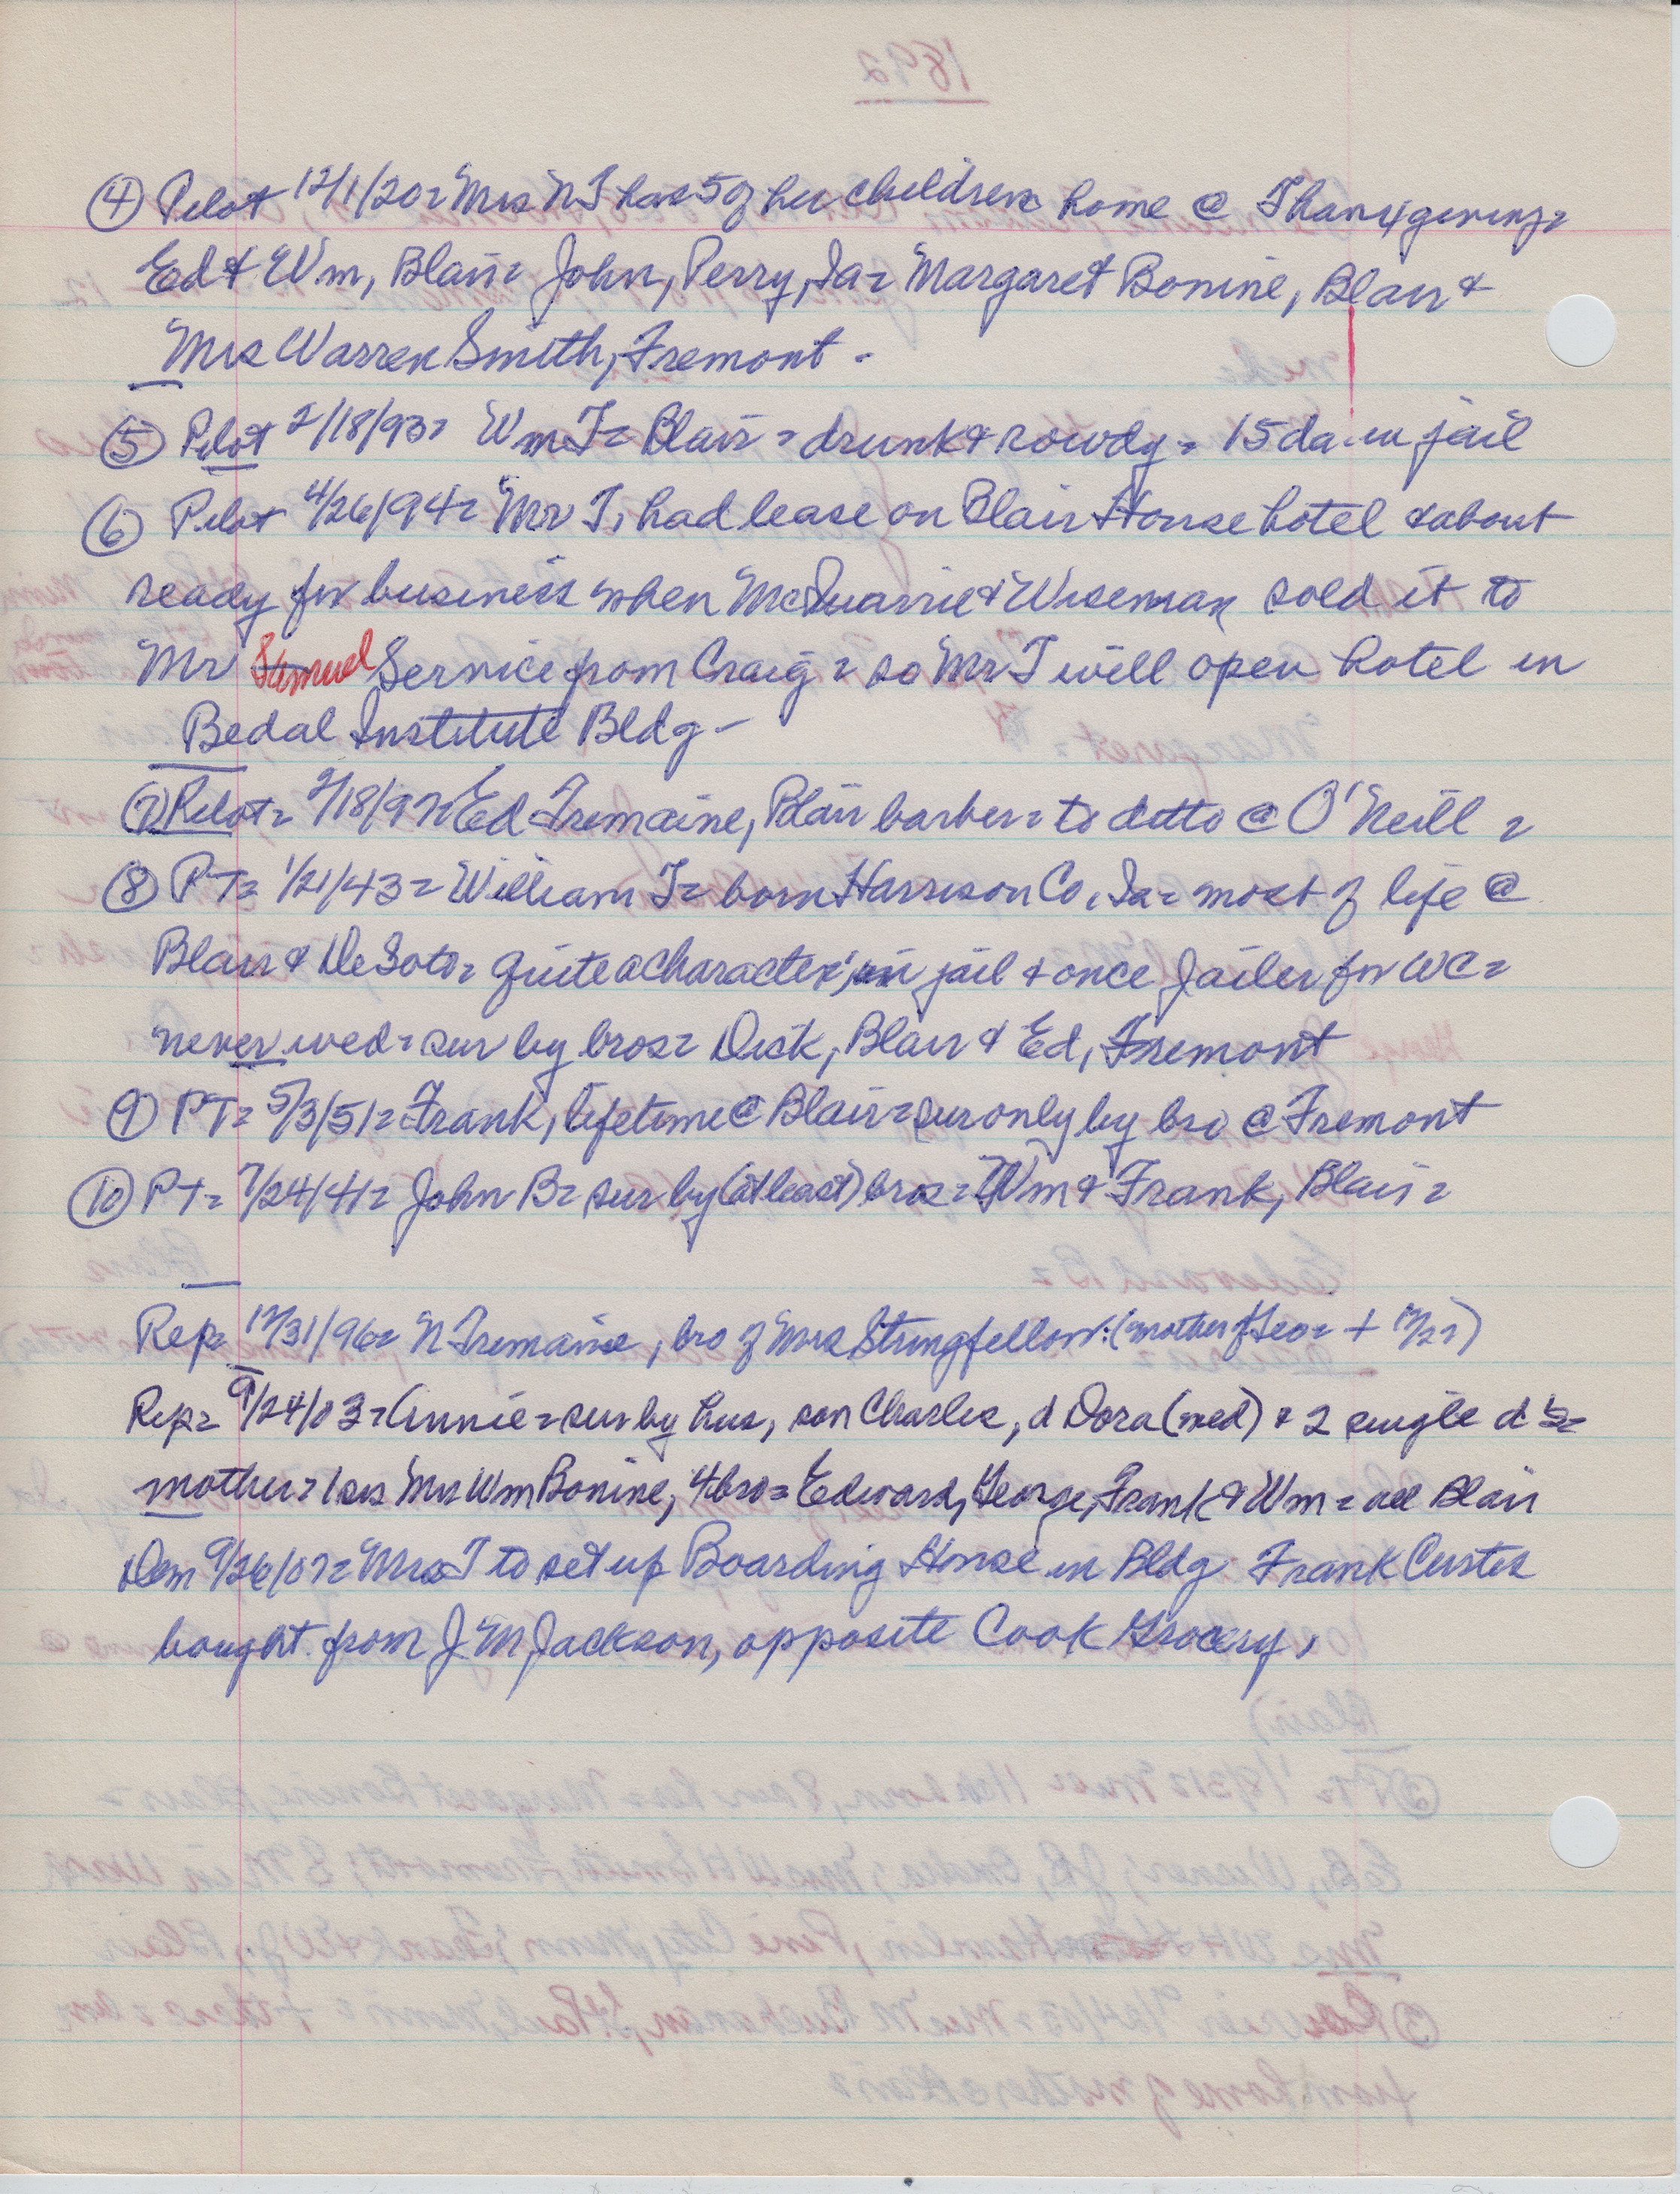 ④ Pilot 12/1/20= Mrs N T has 5 of her children home @ Thanxgiving=
Ed & Wm, Blair= John, Perry, Ia= Margaret Bonine, Blair &
Mrs Warren Smith, Fremont -
⑤ Pilot 2/18/93= Wm T= Blair = drunk & rowdy = 15 da in jail
⑥ Pilot 4/26/94= Mr T, had lease on Blair House hotel & about
ready for business when McQuarrie & Wiseman sold it to
Mr Samuel Service from Craig = so Mr T will open hotel in
Bedal Institute Bldg -
⑦ Pilot= 2/18/97= Ed Tremaine, Blair barber= to ditto @ O'Neill =
⑧ PT= 1/21/43= William T= born Harrison Co, Ia= most of life @
Blair & DeSoto= quite a character, in jail & once Jailer for WC=
never wed= sur by bros= Dick, Blair & Ed, Fremont
⑨ PT= 5/3/51= Frank, lifetime @ Blair= sur only by bro @ Fremont
⑩ PT= 7/24/41= John B= sur by (at least) bros= Wm & Frank, Blair=
Rep= 12/31/96= N Tremaine, bro of Mrs Stringfellow: (mother of Geo= +
Rep= 9/24/03= Annie= sur by hus, son Charles, d Dora (wed) & 2 single d's=
mother= 1 sis Mrs Wm Bonine, 4 bro= Edward, George, Frank & Wm= all Blair
Dem 9/26/07= Mrs T to set up Boarding House in Bldg Frank Curtis
bought from J M Jackson, opposite Cook Grocery,